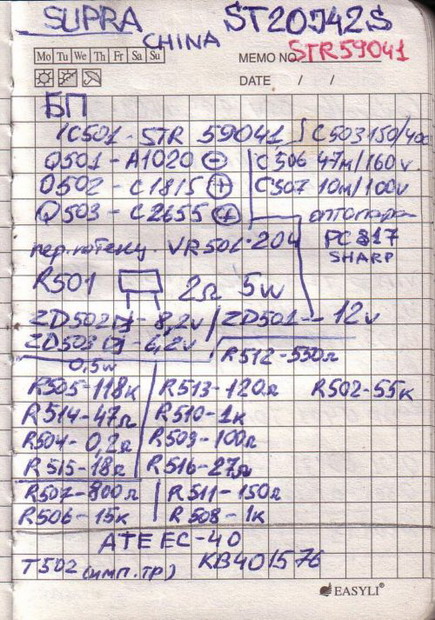 SUPRA ST20J42S
CHINA
Mo Tu We Th Fr Sa Su MEMO NO. STR59041
DATE / /
БП
IC501-STR 59041 C503 150/400
Q501-A1020 ⊖ C506 47м/160v
Q502-C1815 ⊕ C507 10м/100v
Q503-C2655 ⊕ оптопара
пер.потенц. VR501-204 PC817
SHARP
R501 2Ω 5W
ZD502 - 8,2v ZD501 - 12v
ZD503 - 6,2v R512-330Ω
0,5w
R505-118к R513-120Ω R502-55к
R514-47Ω R510-1к
R504-0,2Ω R509-100Ω
R515-18Ω R516-27Ω
R507-800Ω R511-150Ω
R506-15к R508-1к
ATE EC-40
T502 (имп.тр) KB401576
EASYLI